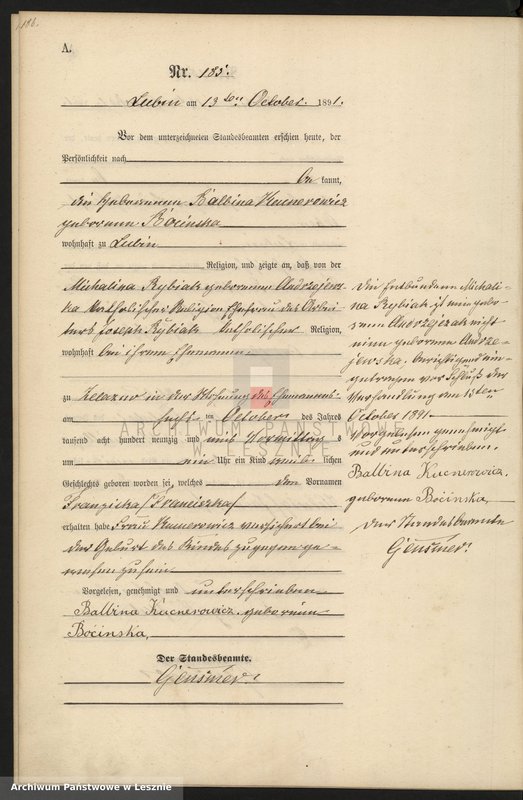 186.
A.
Nr. 185.
Lubin am 13 ten October 1891.
Vor dem unterzeichneten Standesbeamten erschien heute, der
Persönlichkeit nach
be kannt,
die Hebeamme Balbina Kucnerowicz
geborenne Bócinska
wohnhaft zu Lubin
Religion, und zeigte an, daß von der
Michalina Rybiak geborenne Andrzejews-
ka katholischer Religion Ehefrau des Arbei-
ters Joseph Rybiak katholischer Religion,
wohnhaft bei ihrem Ehemanne
zu Zelazno in der Wohnung des Ehemannes
am sechs ten October des Jahres
tausend acht hundert neunzig und eins Vormittag s
um ein Uhr ein Kind weib lichen
Geschlechts geboren worden sei, welches den Vornamen
Franziska/Franciszka/
erhalten habe Frau Kucnerowicz versichert bei
der Geburt des Kindes zugegen ge-
wesen zu sein
Vorgelesen, genehmigt und unterschrieben
Balbina Kucnerowicz geborenne
Bócinska,
Der Standesbeamte.
Gensmer.
Die Entbundene Michali-
na Rybiak ist eine gebo-
renne Andrzejczak nicht
eine geborenne Andrze-
jewska, berichtigend ein-
getragen vor Schluß der
Verhandlung am 13 ten
October 1891.
Vorgelesen genehmigt
und unterschrieben.
Balbina Kucnerowicz,
geborenne Bócinska,
Der Standesbeamte
Gensmer.
ARCHIWUM PAŃSTWOWE
W LESZNIE
Archiwum Państwowe w Lesznie